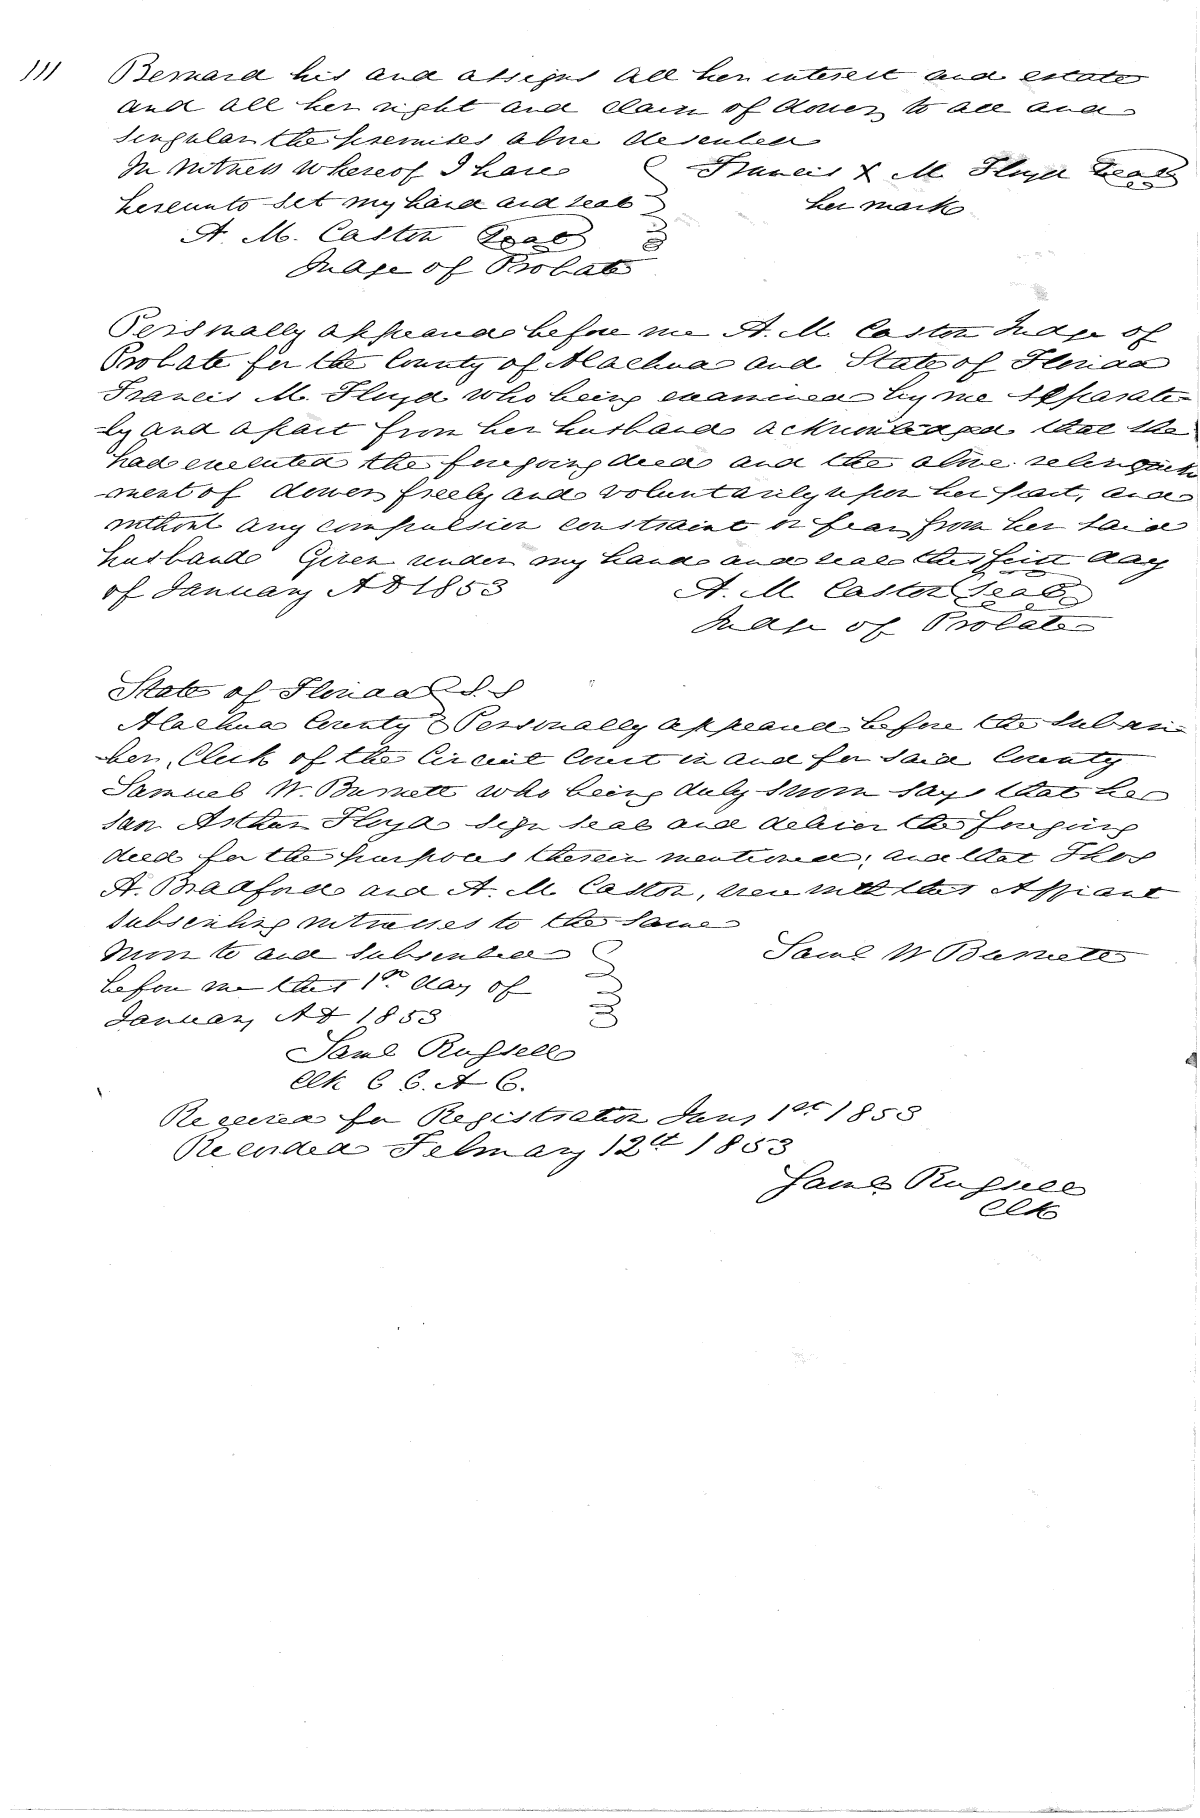 111
Bernard his and assigns all her interest and estate
and all her right and claim of dower, to all and
singular the premises above described
In witness whereof I have Francis X M. Floyd Seal
hereunto set my hand and seal her mark
A. M. Caston Seal
Judge of Probate
Personally appeared before me A. M. Caston Judge of
Probate for the County of Alachua and State of Florida
Francis M. Floyd who being examined by me separate-
-ly and apart from her husband acknowledged that she
had executed the foregoing deed and the above relinquish
-ment of dower, freely and voluntarily upon her part, and
without any compulsion constraint or fear, from her said
husband Given under my hand and seal this first day
of January AD 1853 A. M. Caston Seal
Judge of Probate
State of Florida S.S
Alachua County Personally appeared before the subscri-
-ber, Clerk of the Circuit Court in and for said County
Samuel W. Burnett who being duly sworn says that he
saw Arthur Floyd sign seal and deliver the foregoing
deed for the purposes therein mentioned; and that Thos
A. Bradford and A. M. Caston, were with this Affiant
subscribing witnesses to the same
Sworn to and subscribed Saml W Burnett
before me this 1st day of
January AD 1853
Saml Russell
Clk C C. A C.
Received for Registration Jany 1st 1853
Recorded February 12th 1853
Saml Russell
Clk